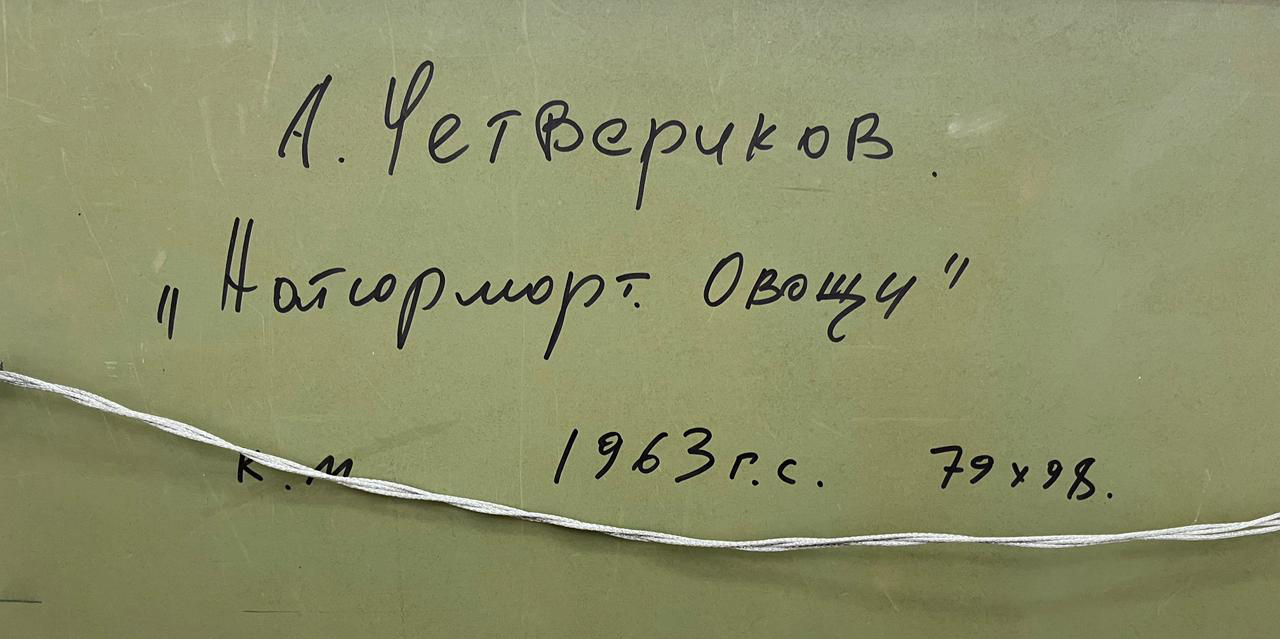 А. Четвериков.
„Натюрморт. Овощи"
к.м 1963 г.с. 79х98.